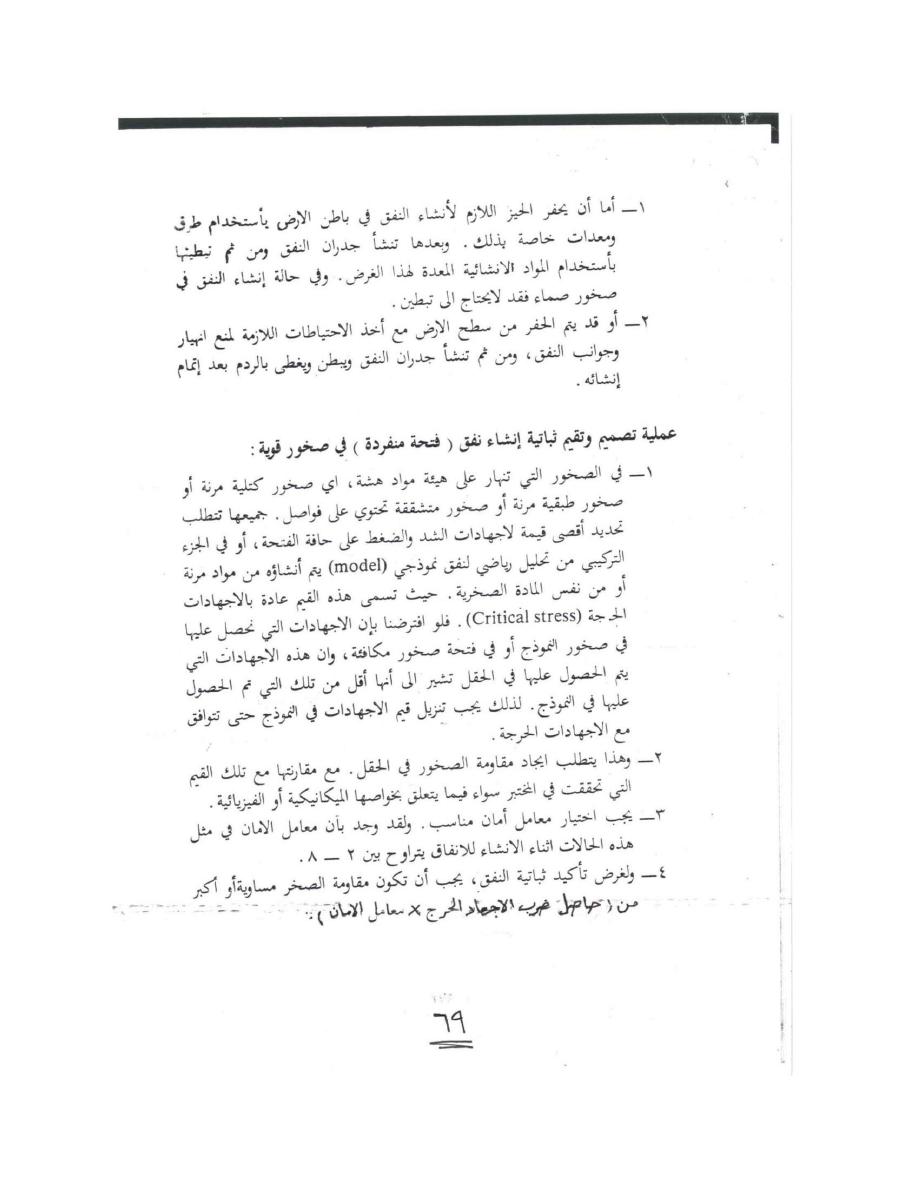 ١ــ أما أن يحفر الحيز اللازم لأنشاء النفق في باطن الارض بأستخدام طرق
ومعدات خاصة بذلك . وبعدها تنشأ جدران النفق ومن ثم تبطينها
بأستخدام المواد الانشائية المعدة لهذا الغرض . وفي حالة إنشاء النفق في
صخور صماء فقد لايحتاج الى تبطين .
٢ــ أو قد يتم الحفر من سطح الارض مع أخذ الاحتياطات اللازمة لمنع انهيار
وجوانب النفق ، ومن ثم تنشأ جدران النفق ويبطن ويغطى بالردم بعد إتمام
إنشائه .
عملية تصميم وتقيم ثباتية إنشاء نفق ( فتحة منفردة ) في صخور قوية :
١ــ في الصخور التي تنهار على هيئة مواد هشة ، اي صخور كتلية مرنة أو
صخور طبقية مرنة أو صخور متشققة تحتوي على فواصل . جميعها تتطلب
تحديد أقصى قيمة لاجهادات الشد والضغط على حافة الفتحة ، أو في الجزء
التركيبي من تحليل رياضي لنفق نموذجي (model) يتم أنشاؤه من مواد مرنة
أو من نفس المادة الصخرية . حيث تسمى هذه القيم عادة بالاجهادات
الحرجة (Critical stress) . فلو افترضنا بإن الاجهادات التي نحصل عليها
في صخور النموذج أو في فتحة صخور مكافئة ، وان هذه الاجهادات التي
يتم الحصول عليها في الحقل تشير الى أنها أقل من تلك التي تم الحصول
عليها في النموذج . لذلك يجب تنزيل قيم الاجهادات في النموذج حتى تتوافق
مع الاجهادات الحرجة .
٢ــ وهذا يتطلب ايجاد مقاومة الصخور في الحقل . مع مقارنتها مع تلك القيم
التي تحققت في المختبر سواء فيما يتعلق بخواصها الميكانيكية أو الفيزيائية .
٣ــ يجب اختيار معامل أمان مناسب . ولقد وجد بأن معامل الامان في مثل
هذه الحالات اثناء الانشاء للانفاق يتراوح بين ٢ ــ ٨ .
٤ــ ولغرض تأكيد ثباتية النفق ، يجب أن تكون مقاومة الصخر مساويةأو أكبر
من ( حاصل ضرب الاجهاد الحرج × معامل الامان ) .
٦٩